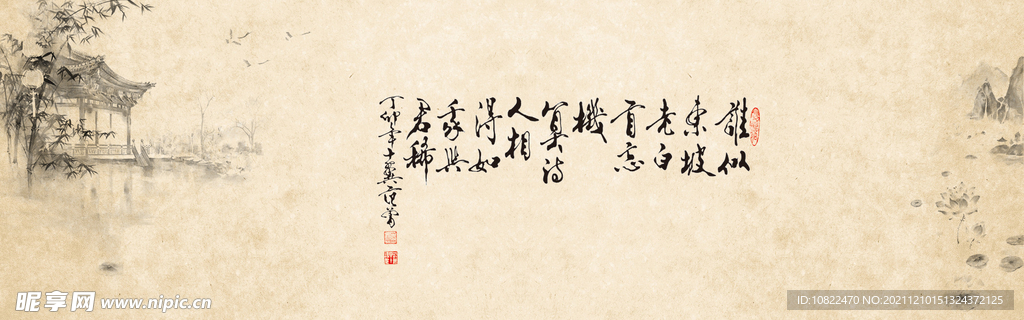 誰似
東坡
老白
首忘
機
算詩
人相
得如
我與
君稀
丁卯年十翼范曾
昵享网 www.nipic.cn
ID:10822470 NO:20211210151324372125